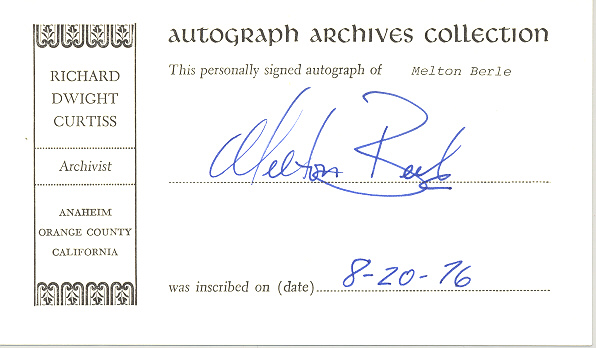 RICHARD
DWIGHT
CURTISS
Archivist
ANAHEIM
ORANGE COUNTY
CALIFORNIA
AUTOGRAPH ARCHIVES COLLECTION
This personally signed autograph of Melton Berle
Melton Berle
was inscribed on (date) 8-20-76